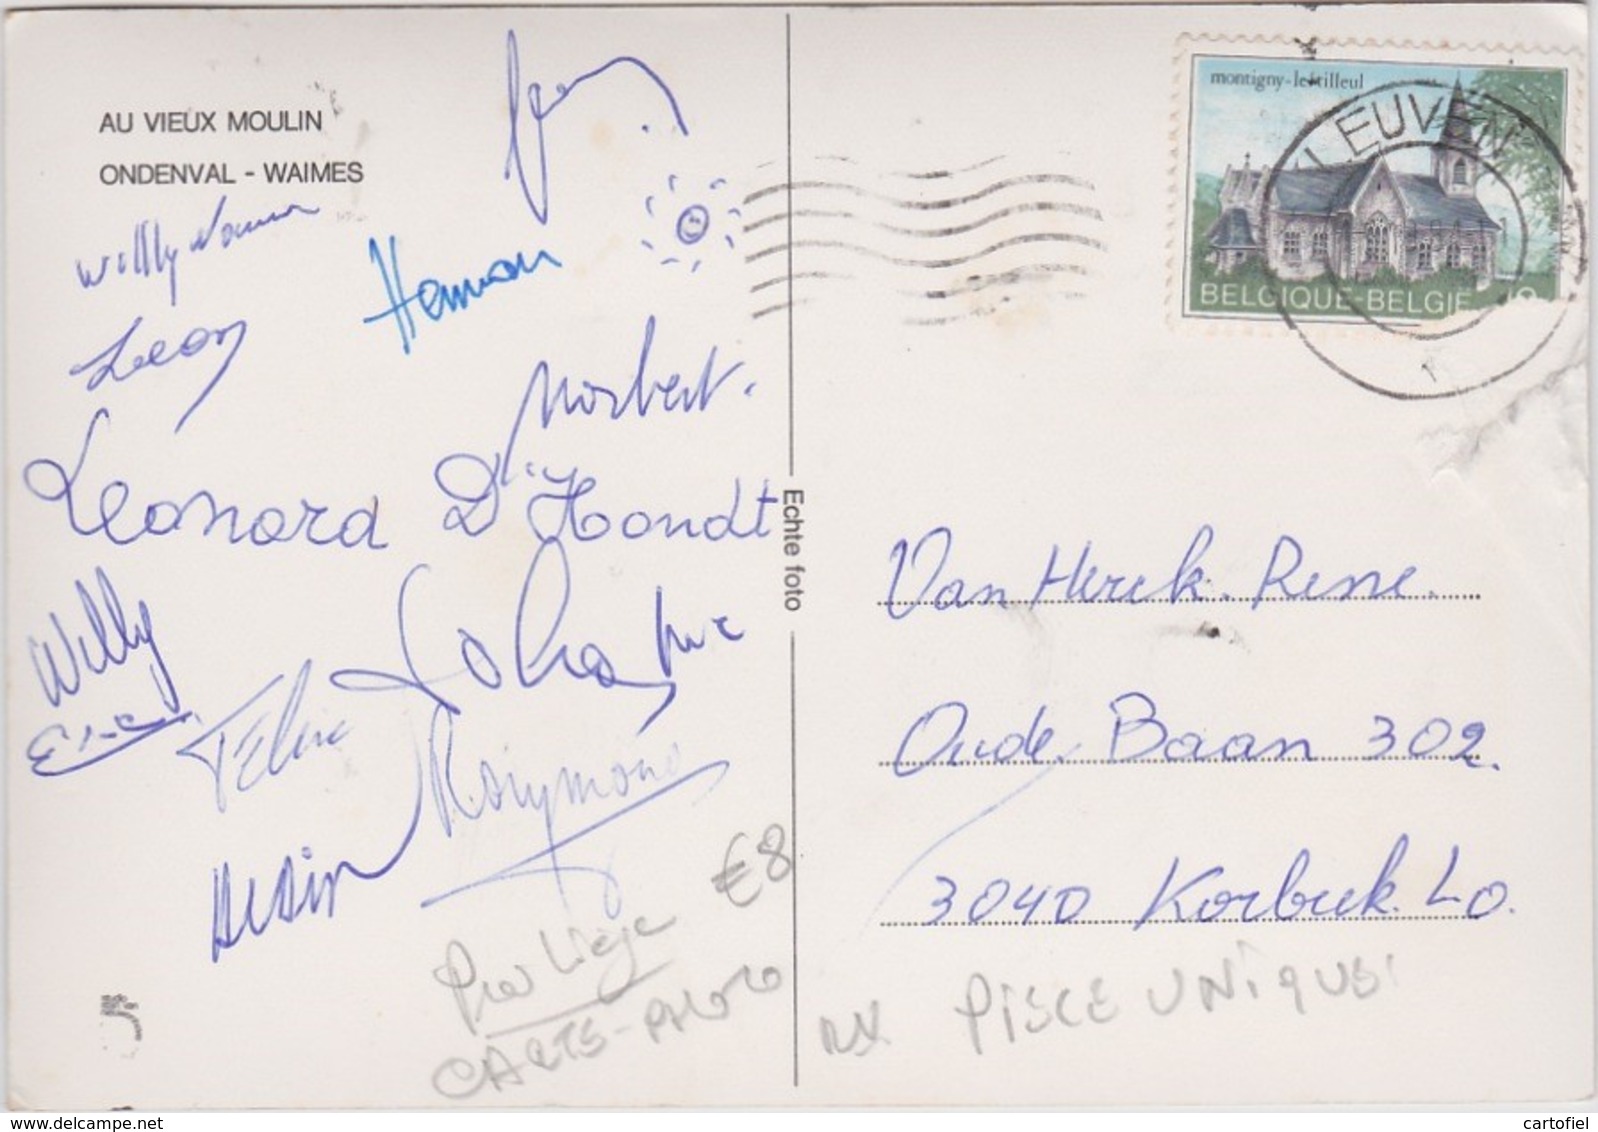 AU VIEUX MOULIN
ONDENVAL - WAIMES
Willy
Herman
Leon
Norbert.
Leonard D'Hondt
Willy
Eric
Felix
Raymond
€8
Prov Liège
CARTE-PHOTO
Echte foto
montigny-le-tilleul
BELGIQUE-BELGIE
LEUVEN
Van Herck. Rene.
Oude Baan 302.
3040 Korbeek. Lo.
PIECE UNIQUE!
delcampe.net
cartofiel